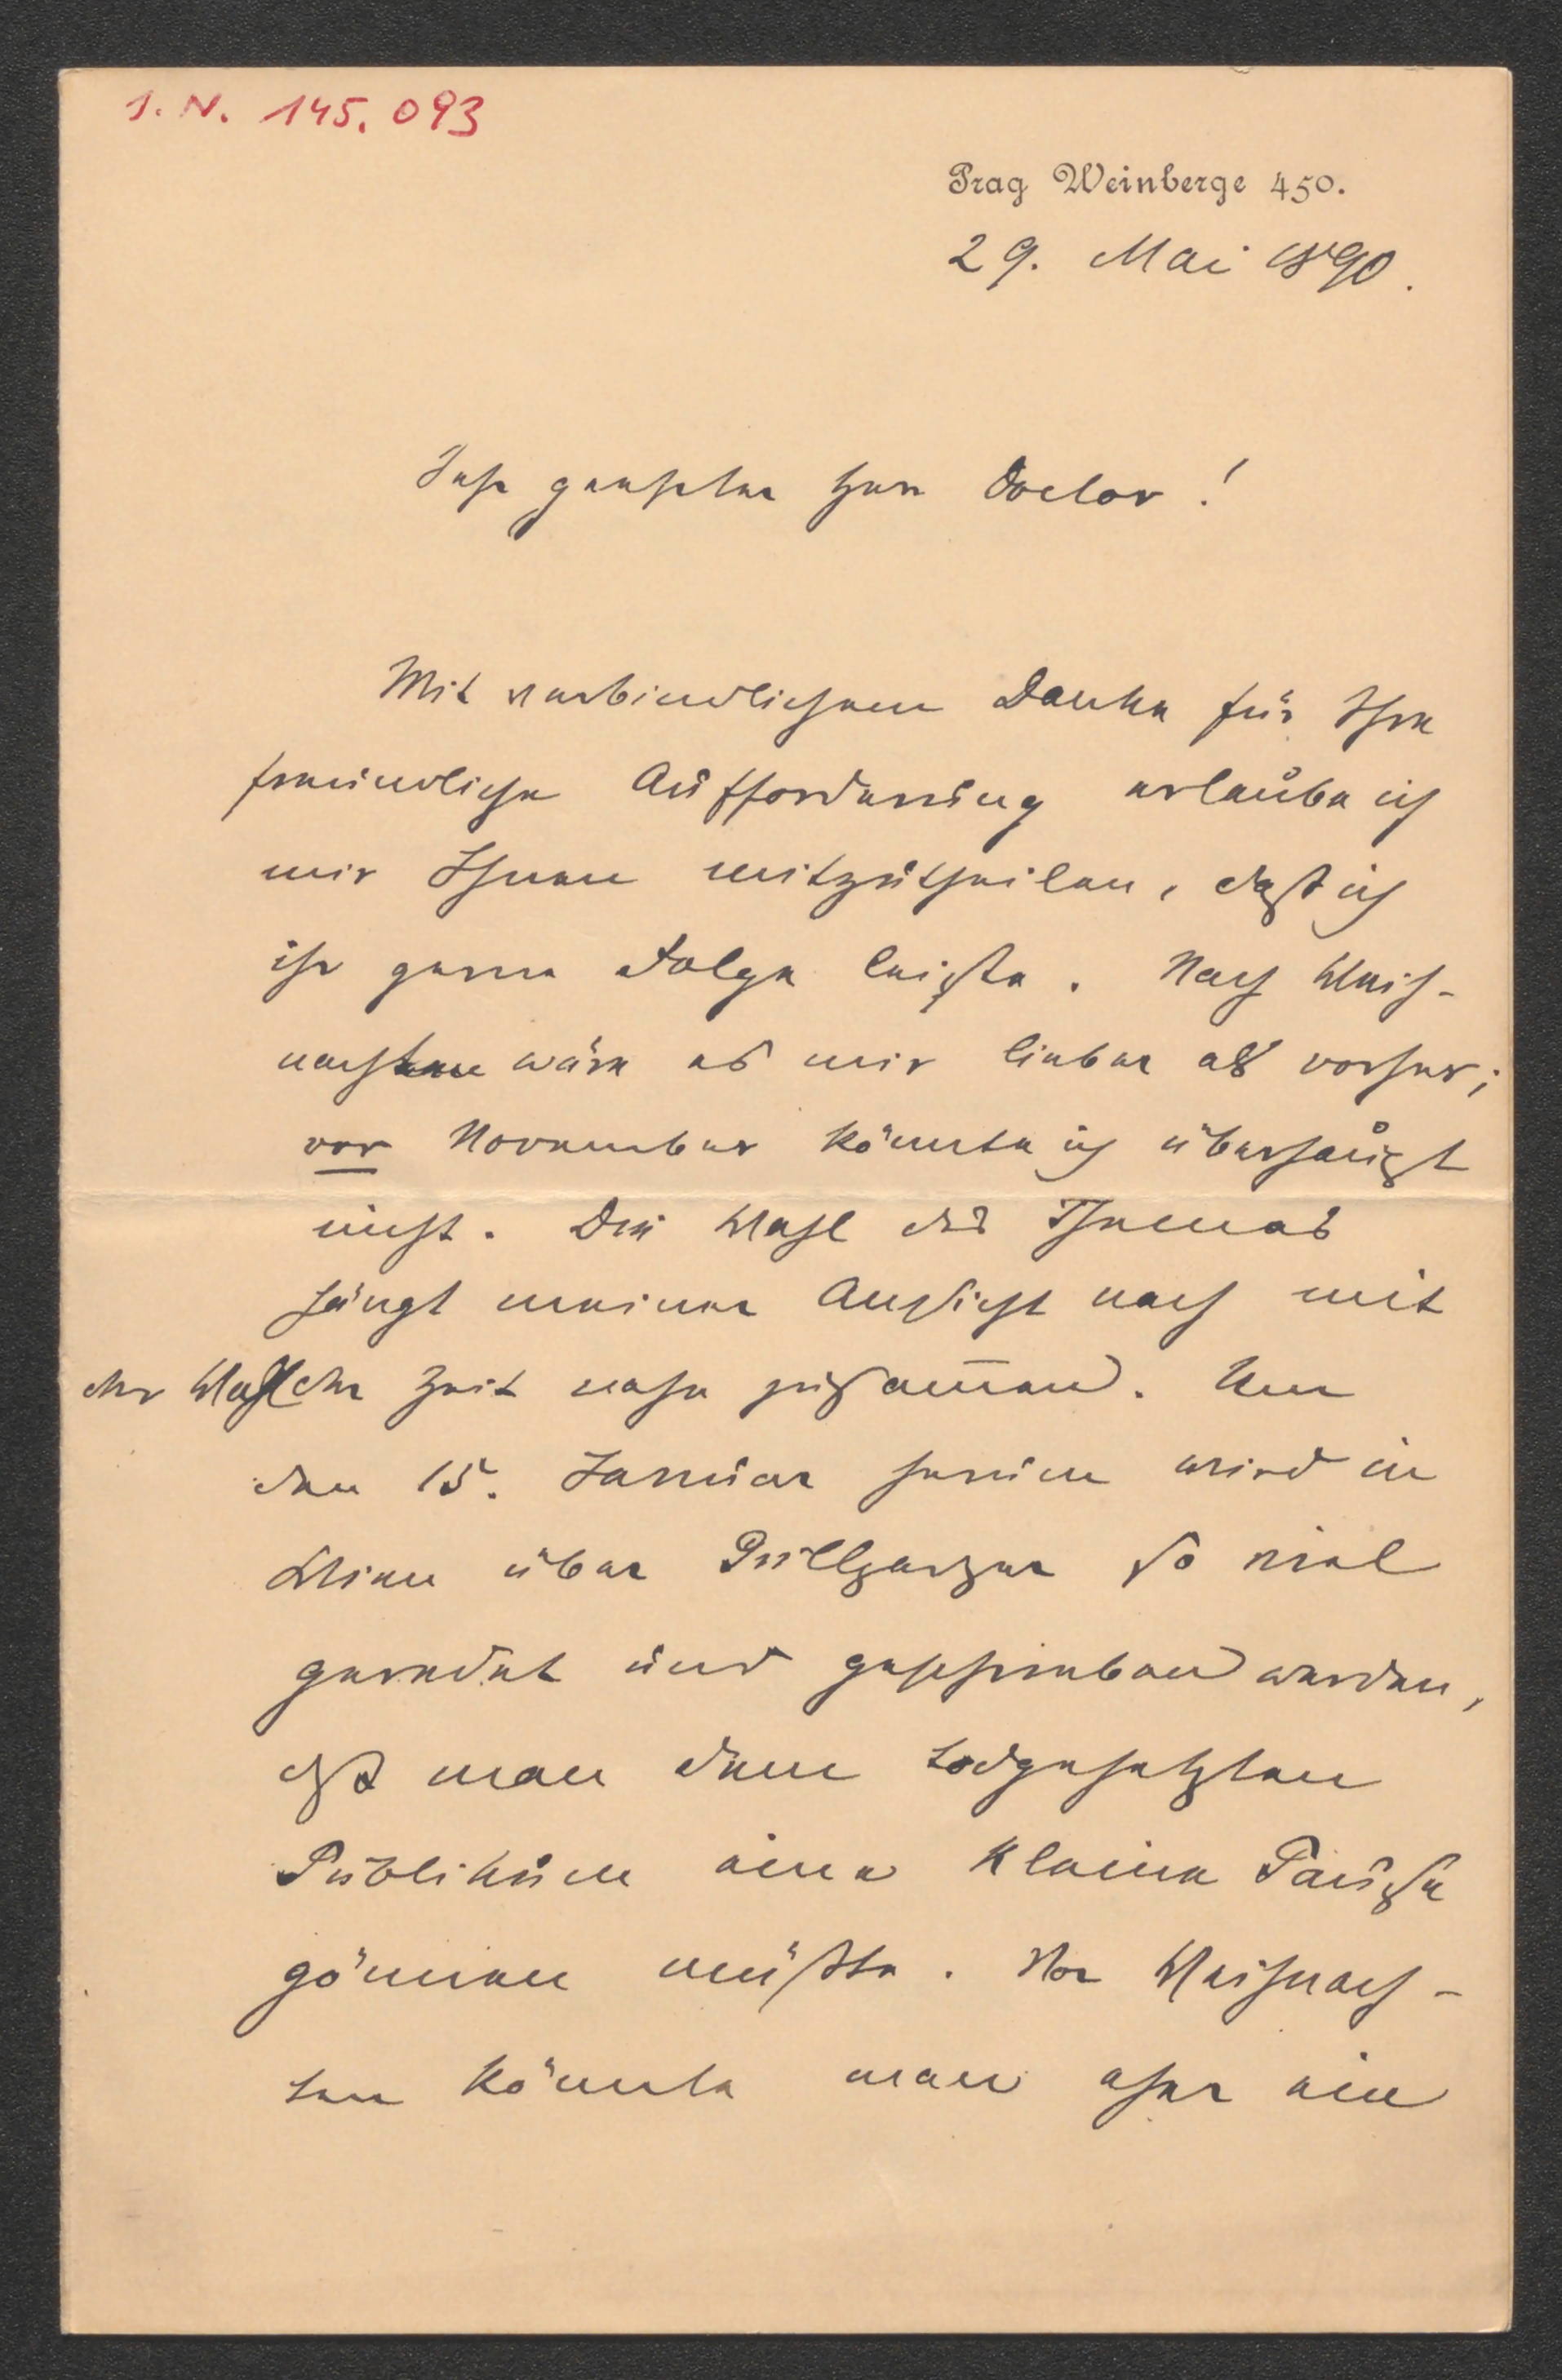 I. N. 145.093
Prag Weinberge 450.
29. Mai 1890.
Sehr geehrter Herr Doctor!
Mit verbindlichem Danke für Ihre
freundliche Aufforderung erlaube ich
mir Ihnen mitzutheilen, daß ich
ihr gerne Folge leiste. Nach Weih-
nachten wäre es mir lieber als vorher;
vor November könnte ich überhaupt
nicht. Die Wahl des Themas
hängt meiner Ansicht nach mit
der Wahl der Zeit nahe zusam̅en. Um
den 15. Januar herum wird in
Wien über Grillparzer so viel
geredet und geschrieben werden,
daß man dem todgehetzten
Publikum eine kleine Pause
gönnen müßte. Vor Weihnach-
ten könnte man eher ein